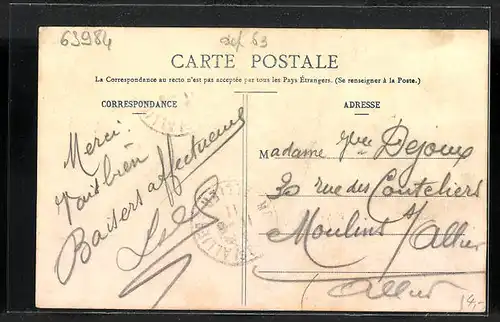 63984
dep 63
CARTE POSTALE
La Correspondance au recto n'est pas acceptée par tous les Pays Étrangers. (Se renseigner à la Poste.)
CORRESPONDANCE
ADRESSE
Merci.
Tout bien
Baisers affectueux
Madame Vve Dejoux
30 rue des Couteliers
Moulins s/ Allier
Allier
14,-